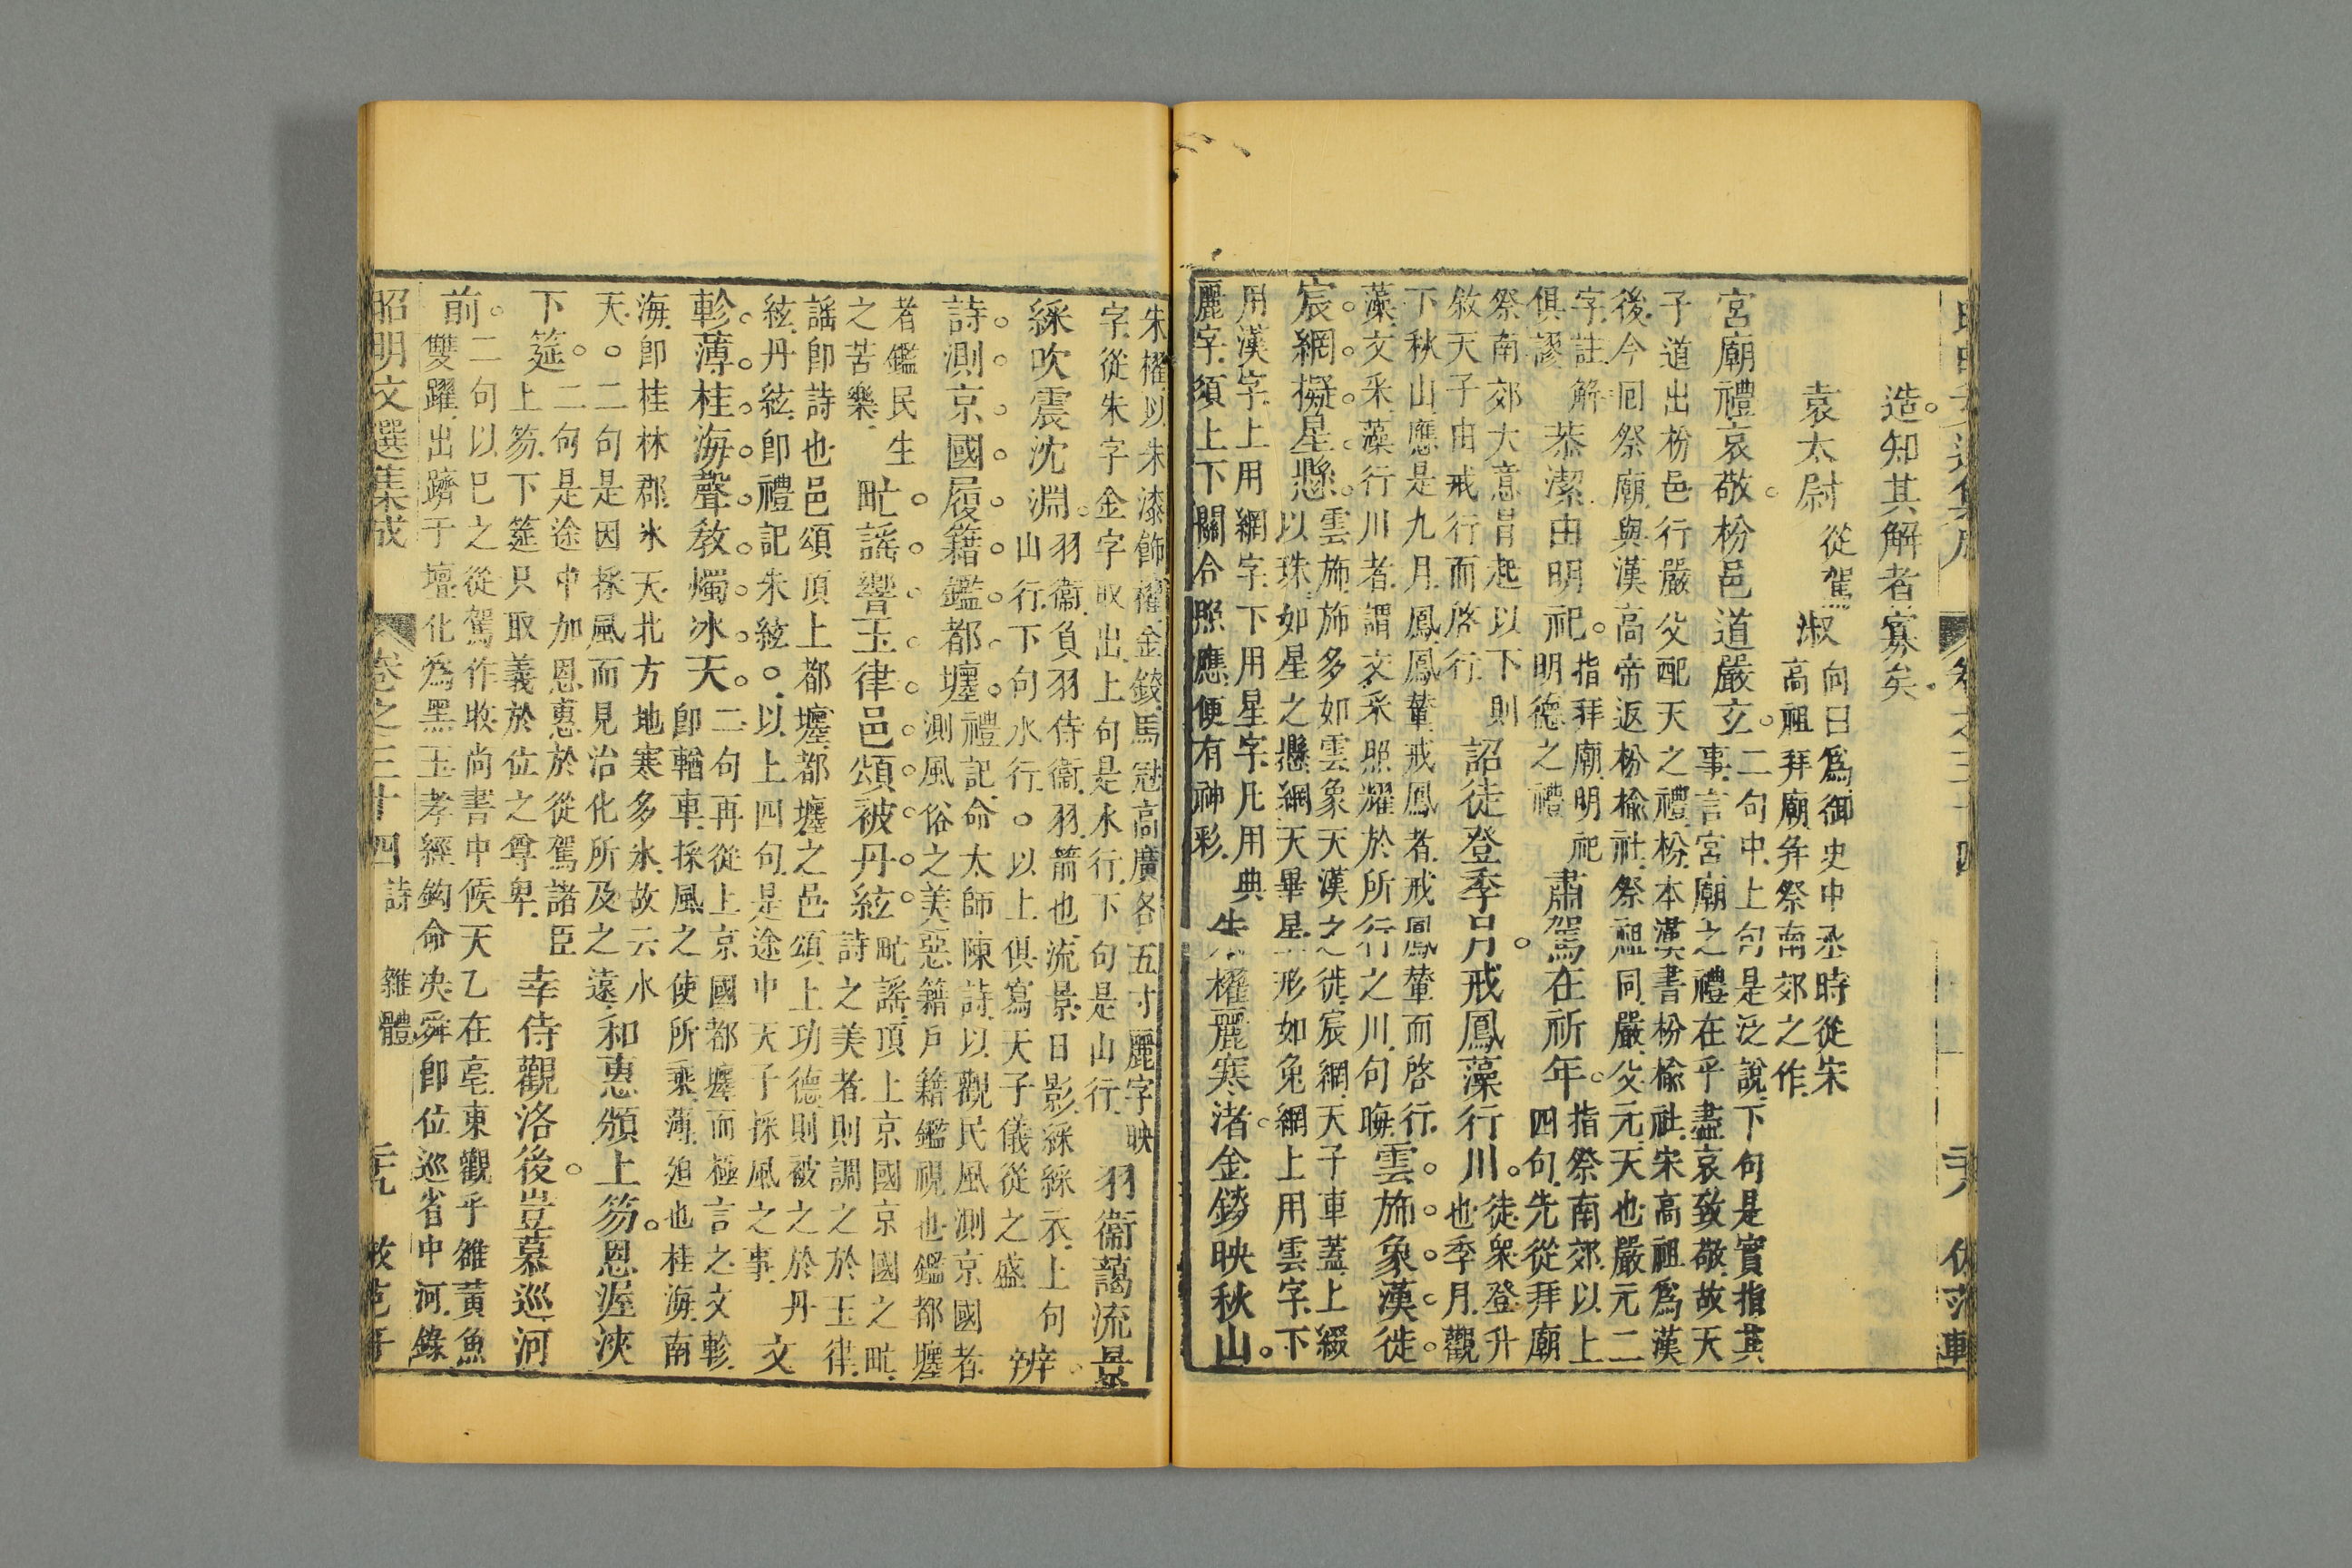 造。知其解者寡矣。
袁太尉 從駕 淑
向曰爲御史中丞時從宋
高祖拜廟并祭南郊之作
宮廟禮哀敬。枌邑道嚴玄。
二句中上句是泛說下句是實指其
事言宮廟之禮在乎盡哀致敬故天
子道出枌邑行嚴父配天之禮枌本漢書枌榆社宋高祖爲漢
後今囘祭廟與漢高帝返枌榆社祭祖同嚴父元天也嚴元二
字註解
俱謬
恭潔由明祀。
指拜廟明祀
明德之禮
肅駕在祈年。
指祭南郊以上
四句先從拜廟
祭南郊大意昌起以下則
敘天子由戒行而啓行
詔徒登季月。戒鳳藻行川。
徒衆登升
也季月觀
下秋山應是九月鳳鳳輦戒鳳者戒鳳輦而啓行
藻文采藻行川者謂文采照耀於所行之川句晦
雲斾象漢徙。
宸網擬星懸。
雲斾斾多如雲象天漢之徙宸網天子車蓋上綴
以珠如星之懸網天畢星形如兔網上用雲字下
用漢字上用網字下用星字凡用典
麗字須上下關合照應便有神彩
朱櫂麗寒渚。金鍐映秋山。
朱櫂以朱漆飾櫂金鍐馬冠高廣各五寸麗字映
字從朱字金字取出上句是水行下句是山行
羽衞藹流景。
綵吹震沈淵。
羽衞負羽侍衞羽箭也流景日影綵綵衣上句
山行下句水行。以上俱寫天子儀從之盛
辨
詩測京國。履籍鑑都壥。
禮記命太師陳詩以觀民風測京國者
測風俗之美惡籍戶籍鑑視也鑑都壥
者鑑民生
之苦樂
甿謠響玉律。邑頌被丹絃。
甿謠頂上京國京國之甿
詩之美者則調之於玉律
謠卽詩也邑頌頂上都壥都壥之邑頌上功德則被之於丹
絃丹絃卽禮記朱絃。以上四句是途中天子採風之事
文
軫薄桂海。聲敎燭冰天。
二句再從上京國都壥而極言之文軫
卽輶車採風之使所乘薄迫也桂海南
海卽桂林郡氷天北方地寒多氷故云氷
天。二句是因採風而見治化所及之遠
和惠頒上笏。恩渥浹
下筵。
二句是途中加恩惠於從駕諸臣
上笏下筵只取義於位之尊卑
幸侍觀洛後。豈慕巡河
前。
二句以巳之從駕作收尚書中候天乙在亳東觀乎雒黃魚
雙躍出躋于壇化爲黑玉孝經鈎命决舜卽位巡省中河錄
昭明文選集成 卷之三十四 詩 雜體